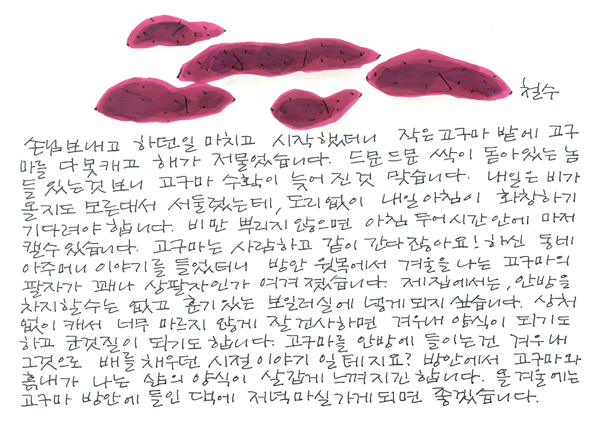 철수
손님 보내고 하던일 마치고 시작했더니 작은 고구마 밭에 고구
마를 다 못캐고 해가 저물었습니다. 드문드문 싹이 돋아있는 놈
들 있는것 보니 고구마 수확이 늦어진것 맞습니다. 내일은 비가
올지도 모른대서 서둘렀는데, 도리없이 내일 아침이 화창하기
기다려야 합니다. 비만 뿌리지 않으면 아침 두어시간 안에 마저
캘수 있습니다. 고구마는 사람하고 같이 간다잖아요! 하신 동네
아주머니 이야기를 들었더니 방안 윗목에서 겨울을 나는 고구마의
팔자가 꽤나 상팔자인가 여겨졌습니다. 제집에서는, 안방을
차지할수는 없고 훈기있는 보일러실에 넣게 되지 싶습니다. 상처
없이 캐서 너무 마르지 않게 잘 건사하면 겨우내 양식이 되기도
하고 군것질이 되기도 합니다. 고구마를 안방에 들이는건 겨우내
그것으로 배를 채우던 시절 이야기 일테지요? 방안에서 고구마와
흙내가 나는 삶의 양식이 살갑게 느껴지긴 합니다. 올 겨울에는
고구마 방안에 들인 댁에 저녁마실 가게되면 좋겠습니다.